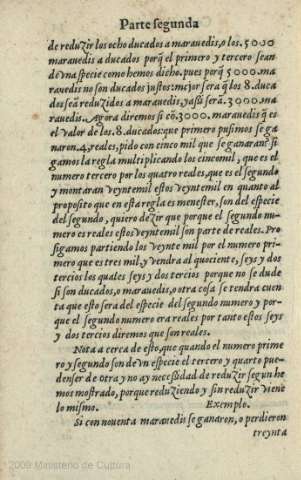 Parte segunda
de reduzir los ocho ducados a marauedis, o los. 5000
marauedis a ducados porq̃ el primero y tercero sean
de vna specie como hemos dicho. pues porq̃ 5000. ma
rauedis no son ducados justos: mejor sera q̃ los 8. duca
dos seã reduzidos a marauedis, y assi serã. 3000. ma
rauedis. Agora diremos si cõ. 3000. marauedis q̃ es
el valor de los. 8. ducados: que primero pusimos se ga
naron. 4. reales, pido con cinco mil que se ganaran? si
gamos la regla multiplicando los cincomil, que es el
numero tercero por los quatro reales, que es el segundo
y montaran veyntemil estos veyntemil en quanto al
proposito que en esta regla es menester, son del especie
del segundo, quiero dezir que porque el segundo nu-
mero es reales estos veyntemil son parte de reales. Pro
sigamos partiendo los veynte mil por el numero pri-
mero que es tres mil, y vendra al quociente, seys y dos
tercios los quales seys y dos tercios porque no se dude
si son ducados, o marauedis, o otra cosa se tendra cuen
ta que esto sera del especie del segundo numero y por-
que el segundo numero era reales por tanto estos seys
y dos tercios diremos que son reales.
Nota a cerca de esto, que quando el numero prime
ro y segundo son de vn especie el tercero y quarto pue-
den ser de otra y no ay necessidad de reduzir segun he
mos mostrado, porque reduziendo y sin reduzir viene
lo mismo. Exemplo.
Si con nouenta marauedis se ganaron, o perdieron
treynta
2009 Ministerio de Cultura